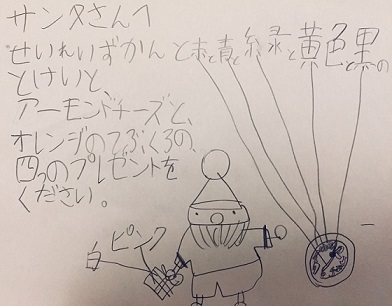 サンタさんへ
せいれいずかんと赤と青と緑と黄色と黒の
とけいと、
アーモンドチーズと、
オレンジのてぶくろの、
四つのプレゼントを
ください。
白 ピンク